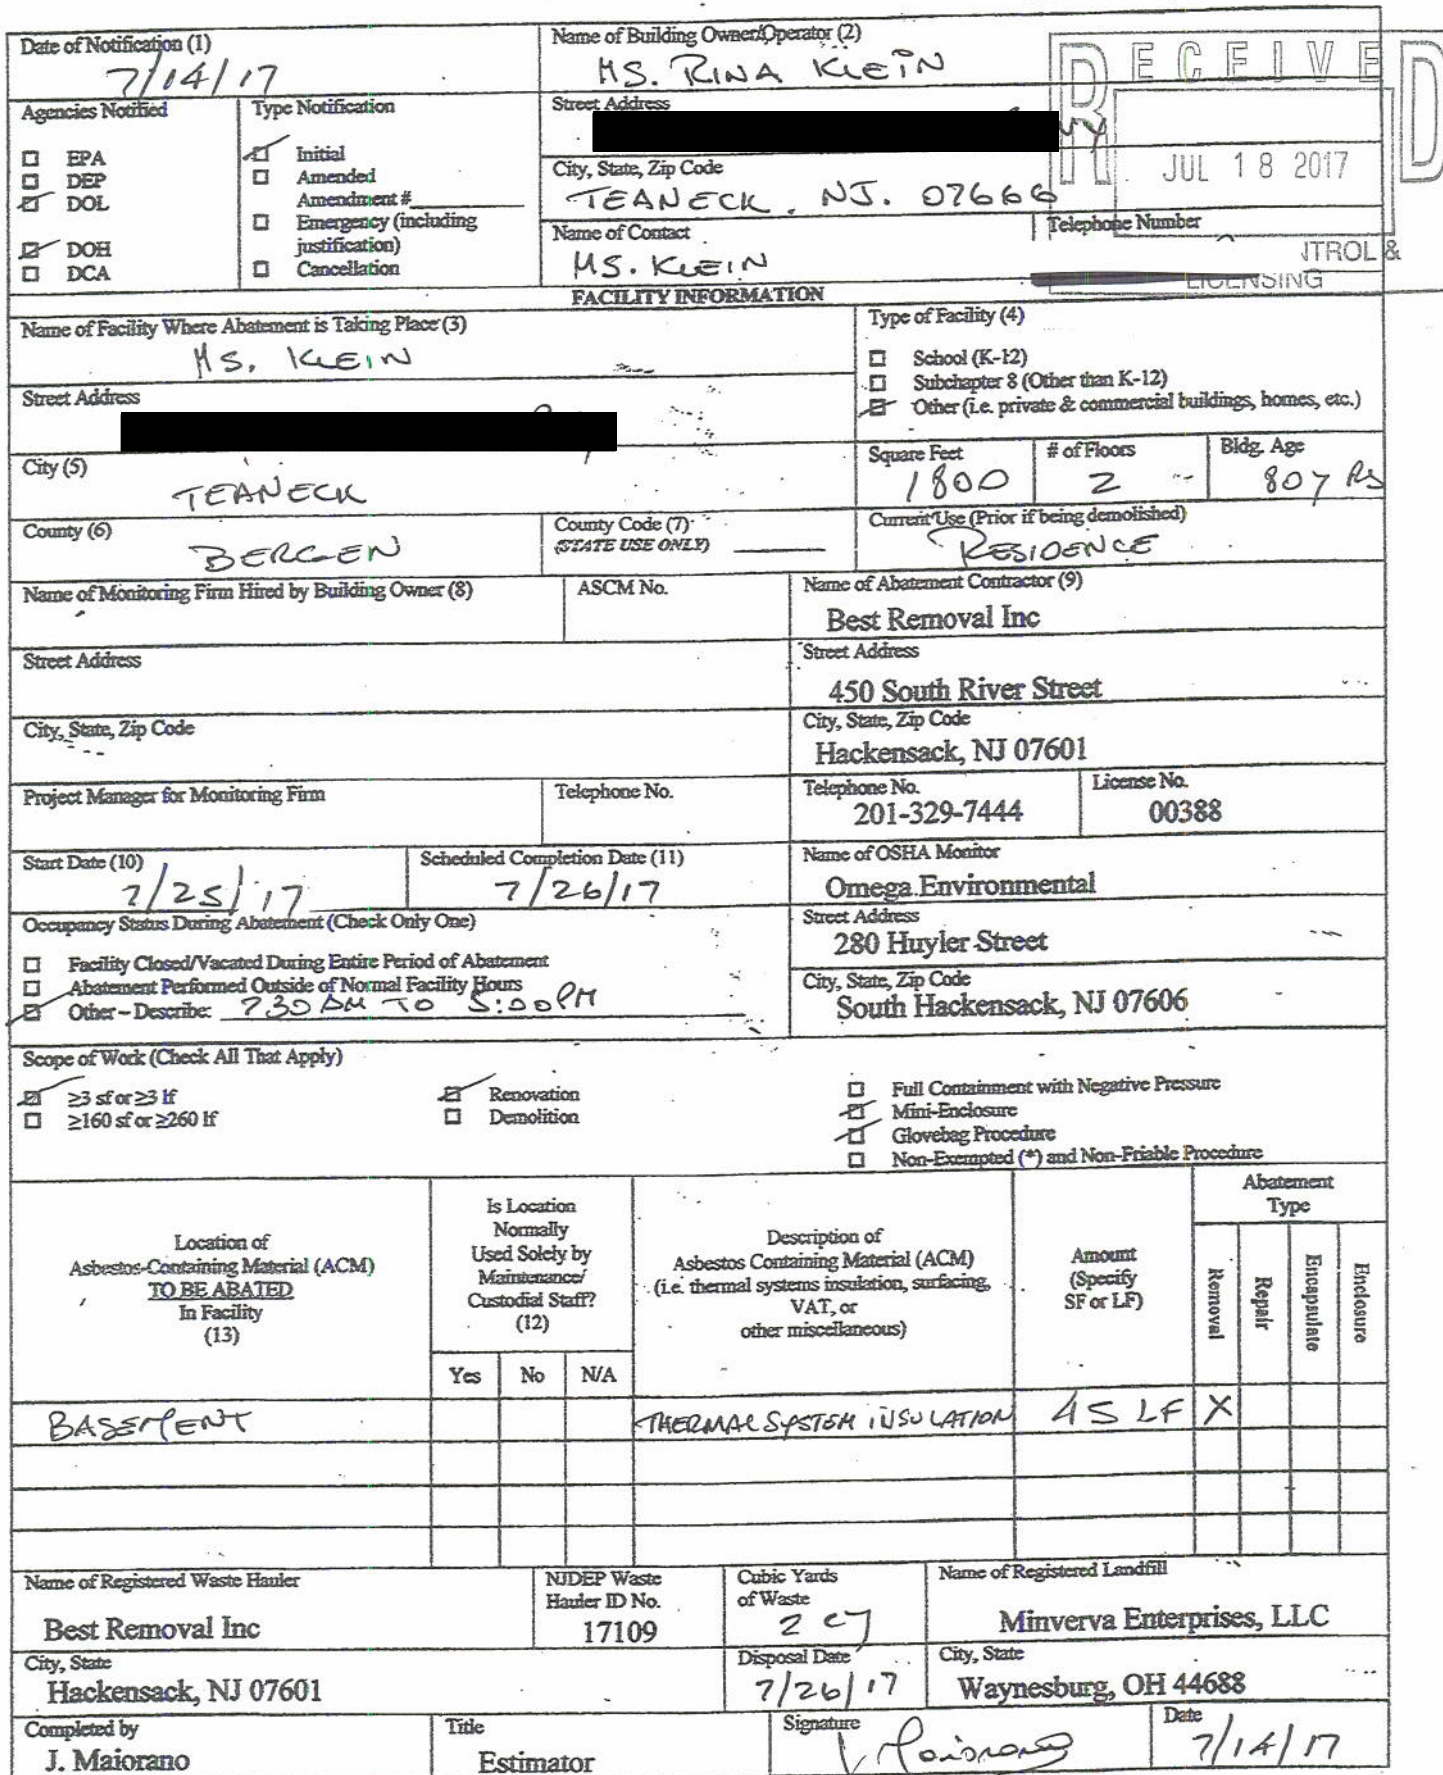 Date of Notification (1)
7/14/17
Name of Building Owner/Operator (2)
MS. RINA KLEIN
RECEIVED
JUL 18 2017
Agencies Notified
EPA
DEP
DOL
DOH
DCA
Type Notification
Initial
Amended
Amendment #
Emergency (including
justification)
Cancellation
Street Address
City, State, Zip Code
TEANECK, NJ. 07666
Name of Contact
MS. KLEIN
Telephone Number
NTROL &
LICENSING
FACILITY INFORMATION
Name of Facility Where Abatement is Taking Place (3)
MS. KLEIN
Type of Facility (4)
School (K-12)
Subchapter 8 (Other than K-12)
Other (i.e. private & commercial buildings, homes, etc.)
Street Address
City (5)
TEANECK
Square Feet
1800
# of Floors
2
Bldg. Age
80 YRS
County (6)
BERGEN
County Code (7)
(STATE USE ONLY)
Current Use (Prior if being demolished)
RESIDENCE
Name of Monitoring Firm Hired by Building Owner (8)
ASCM No.
Name of Abatement Contractor (9)
Best Removal Inc
Street Address
Street Address
450 South River Street
City, State, Zip Code
City, State, Zip Code
Hackensack, NJ 07601
Project Manager for Monitoring Firm
Telephone No.
Telephone No.
201-329-7444
License No.
00388
Start Date (10)
7/25/17
Scheduled Completion Date (11)
7/26/17
Name of OSHA Monitor
Omega Environmental
Occupancy Status During Abatement (Check Only One)
Facility Closed/Vacated During Entire Period of Abatement
Abatement Performed Outside of Normal Facility Hours
Other – Describe: 730 AM TO 5:00 PM
Street Address
280 Huyler Street
City, State, Zip Code
South Hackensack, NJ 07606
Scope of Work (Check All That Apply)
≥3 sf or ≥3 lf
≥160 sf or ≥260 lf
Renovation
Demolition
Full Containment with Negative Pressure
Mini-Enclosure
Glovebag Procedure
Non-Exempted (*) and Non-Friable Procedure
Location of
Asbestos-Containing Material (ACM)
TO BE ABATED
In Facility
(13)
Is Location
Normally
Used Solely by
Maintenance/
Custodial Staff?
(12)
Yes No N/A
Description of
Asbestos Containing Material (ACM)
(i.e. thermal systems insulation, surfacing,
VAT, or
other miscellaneous)
Amount
(Specify
SF or LF)
Abatement
Type
Removal
Repair
Encapsulate
Enclosure
BASEMENT THERMAL SYSTEM INSULATION 45 LF X
Name of Registered Waste Hauler
Best Removal Inc
NJDEP Waste
Hauler ID No.
17109
Cubic Yards
of Waste
2 CY
Name of Registered Landfill
Minverva Enterprises, LLC
City, State
Hackensack, NJ 07601
Disposal Date
7/26/17
City, State
Waynesburg, OH 44688
Completed by
J. Maiorano
Title
Estimator
Signature
J Maiorano
Date
7/14/17